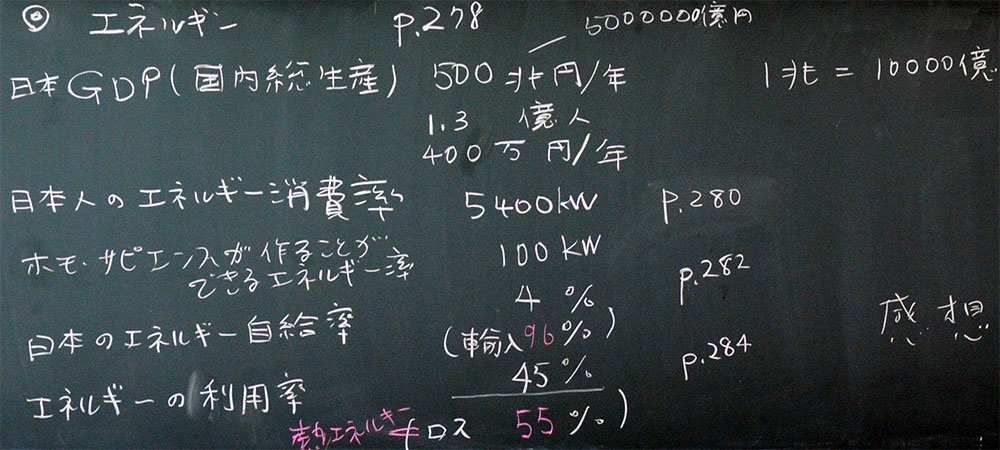 ◎ エネルギー p.278
5000000億円
日本GDP(国内総生産) 500兆円/年 1兆=10000億
1.3 億人
400万円/年
日本人のエネルギー消費率 5400kW p.280
ホモ・サピエンスが作ることが 100kW
できるエネルギー率
日本のエネルギー自給率 4% p.282
(輸入96%) 感想
エネルギーの利用率 45% p.284
熱エネルギー ロス 55%)